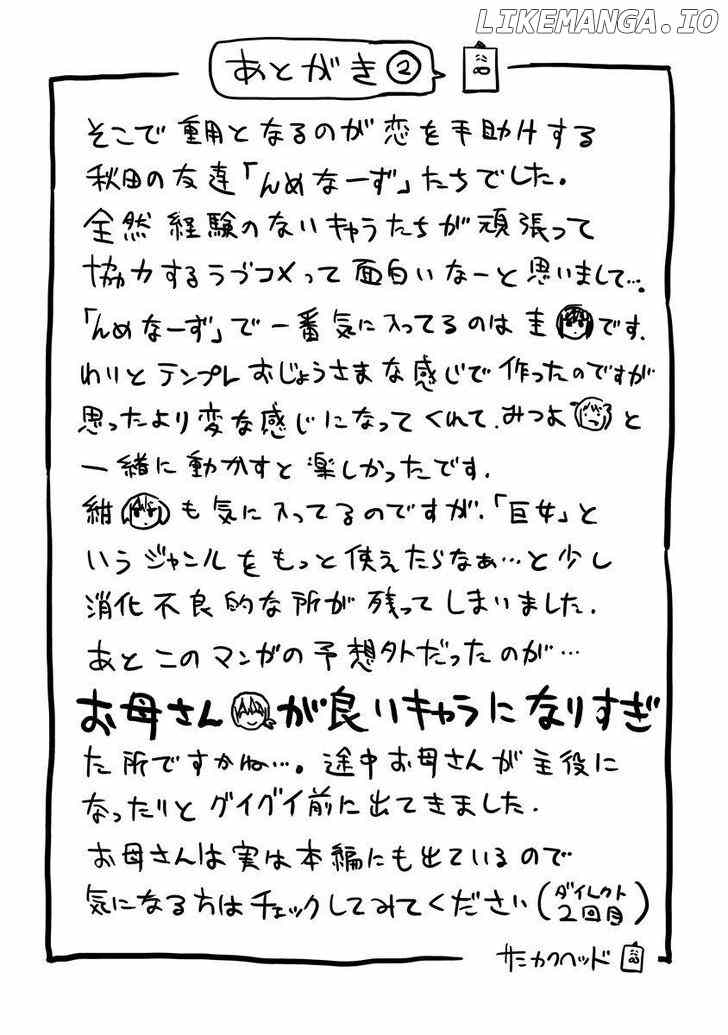 LIKEMANGA.IO
あとがき②
そこで重用となるのが恋を手助けする
秋田の友達「んめなーず」たちでした。
全然経験のないキャラたちが頑張って
協力するラブコメって面白いなーと思いまして…。
「んめなーず」で一番気に入ってるのは圭です.
わりとテンプレおじょうさまな感じで作ったのですが
思ったより変な感じになってくれて.みつよと
一緒に動かすと楽しかったです.
紺も気に入ってるのですが.「巨女」と
いうジャンルをもっと使えたらなぁ…と少し
消化不良的な所が残ってしまいました.
あとこのマンガの予想外だったのが…
お母さんが良いキャラになりすぎ
た所ですかね…。途中お母さんが主役に
なったりとグイグイ前に出てきました.
お母さんは実は本編にも出ているので
気になる方はチェックしてみてください(ダイレクト2回目)
サンカクヘッド